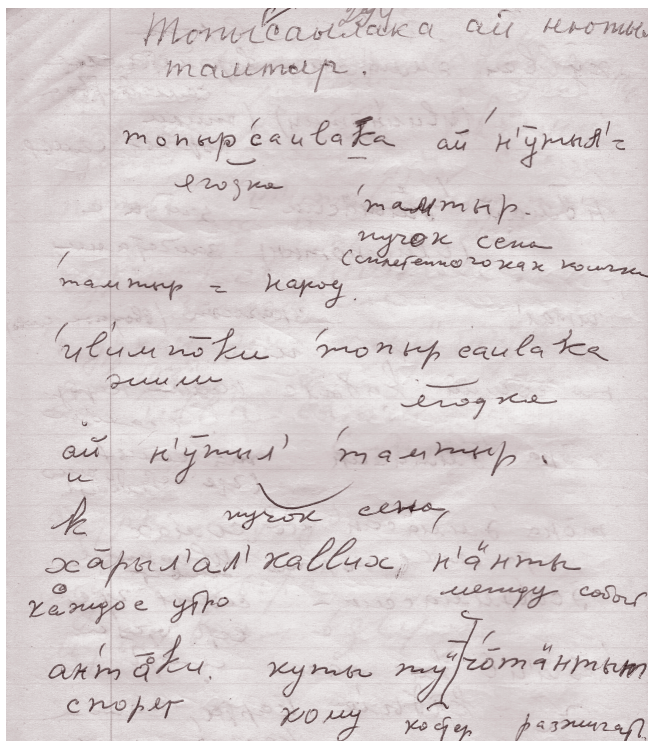 Топысаылака ай нюты
тамтыр.
топыр саивака ай н'ӯтыл'=
ягодка
тамтыр.
пучок сена
(сплетенного как косички
тамтыр = народ.
илымпōки топыр саивака
жили ягодка
ай н'ӯтыл' тамтыр.
и
пучок сена,
к
хāрыл'ал' каввих, н'ӓнты
каждое утро между собой
антāки. куты тӱ чōтӓнтыт
спорят кому костер разжигать